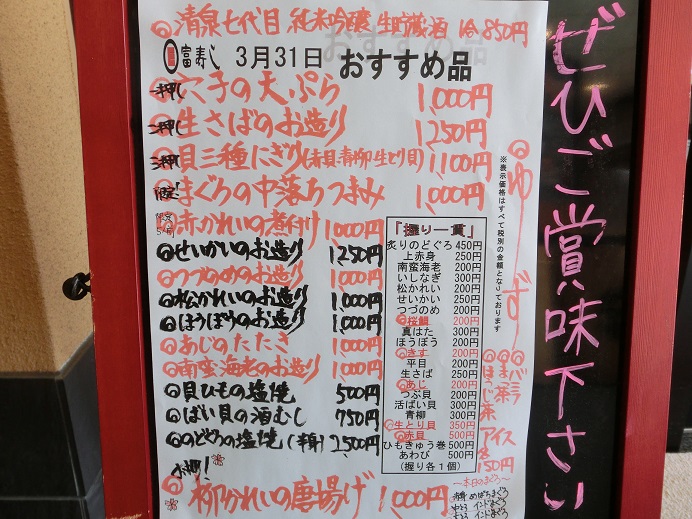 ◎清泉七代目 純米吟醸 生貯蔵酒 1合 850円
富寿し 3月31日 おすすめ品
一押し 穴子の天ぷら 1,000円
二押し 生さばのお造り 1,250円
三押 貝三種にぎり(赤貝・青柳・生とり貝) 1,100円
限定! まぐろの中落ちつまみ 1,000円
限定
◎赤かれいの煮付け 1,000円
◎せいかいのお造り 1,250円
◎つづのめのお造り 1,000円
◎松かれいのお造り 1,000円
◎ほうぼうのお造り 1,000円
◎あじのたたき 1,000円
◎南蛮海老のお造り 1,000円
◎貝ひもの塩焼 500円
◎ばい貝の酒むし 750円
◎のどぐろの塩焼(半身) 2,500円
柳かれいの唐揚げ 1,000円
「握り一貫」
炙りのどぐろ 450円
上赤身 250円
南蛮海老 200円
いしなぎ 300円
松かれい 200円
せいかい 250円
つづのめ 200円
◎桜鯛 200円
真はた 300円
ほうぼう 200円
◎きす 200円
平目 200円
生さば 250円
◎あじ 200円
つぶ貝 200円
活ばい貝 300円
青柳 300円
◎生とり貝 350円
◎赤貝 500円
ひもきゅう巻 500円
あわび 500円
(握り各1個)
※表示価格はすべて税別の金額となっております
◎ゆず
◎バニラ
◎まっ茶
◎ほうじ茶
アイス
各150円
～本日のまぐろ～
赤身 めばちまぐろ
中とろ インドまぐろ
大とろ インドまぐろ
ぜひご賞味下さい